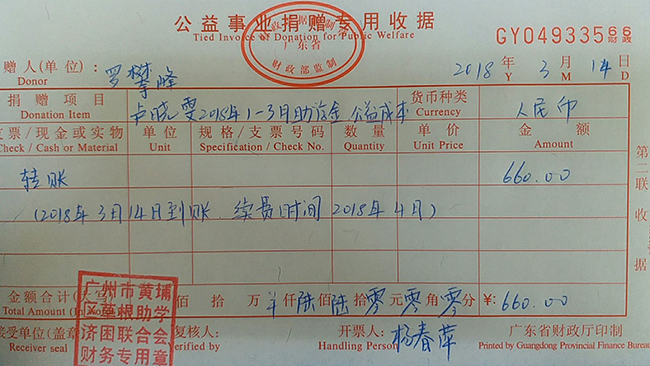 公益事业捐赠专用收据
Tied Invoice of Donation for Public Welfare
广东省
财政部监制
GY04933566
赠人(单位): 罗攀峰 2018年 3月 14日
Donor Y M D
捐赠项目 卢晓雯2018年1-3月助资金 公益成本 货币种类 人民币
Donation Item Currency
支票/现金或实物 单位 规格/支票号码 数量 单价 金额
Check / Cash or Material Unit Specification / Check No. Quantity Unit Price Amount
转账 660.00
(2018年3月14日到账 续费时间 2018年4月)
第二联收据
金额合计(大 佰 拾 万 仟 陆佰 陆拾 零元 零角 零分 ¥: 660.00
Total Amount (In
广州市黄埔
区草根助学
济困联合会
财务专用章
接受单位(盖章 复核人: 开票人: 杨春萍 广东省财政厅印制
Receiver seal Verified by Handling Person Printed by Guangdong Provincial Finance Bureau